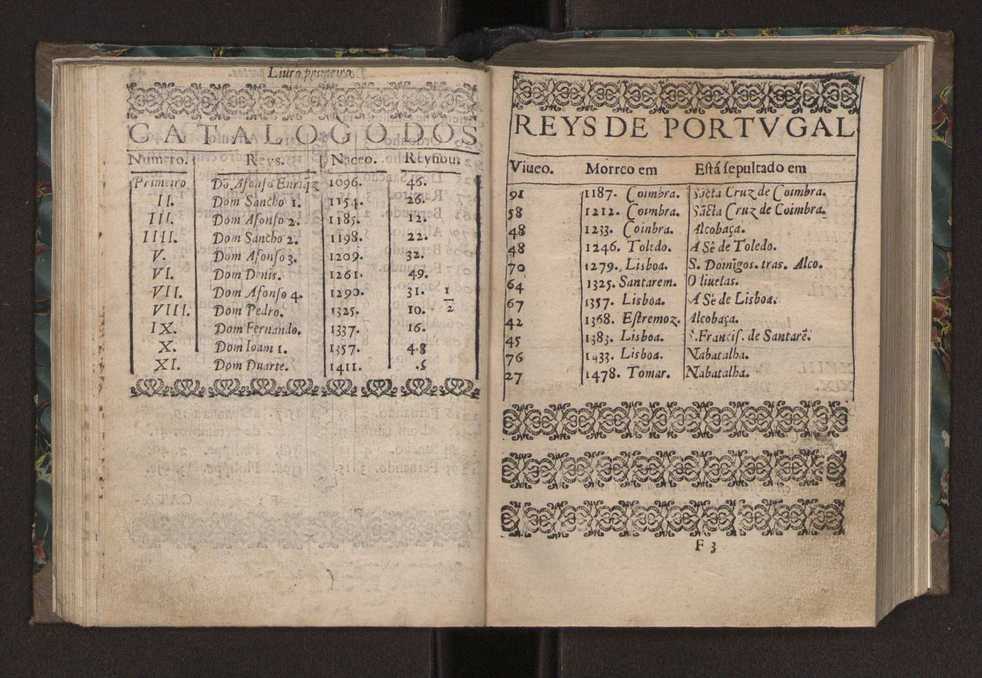 Liuro primeiro.
CATALOGO DOS
Numero. Reys. Naceo. Reynou.
Primeiro Dõ Afonso Enriq̃z 1096. 46.
II. Dom Sancho 1. 1154. 26.
III. Dom Afonso 2. 1185. 12.
IIII. Dom Sancho 2. 1198. 22.
V. Dom Afonso 3. 1209. 32.
VI. Dom Denis. 1261. 49.
VII. Dom Afonso 4. 1290. 31. 1/2
VIII. Dom Pedro. 1325. 10.
IX. Dom Fernando. 1337. 16.
X. Dom Ioam 1. 1357. 48
XI. Dom Duarte. 1411. .5
REYS DE PORTVGAL
Viueo. Morreo em Está sepultado em
91 1187. Coimbra. Sãcta Cruz de Coimbra.
58 1212. Coimbra. Sãcta Cruz de Coimbra.
48 1233. Coinbra. Alcobaça.
48 1246. Toledo. A Sè de Toledo.
70 1279. Lisboa. S. Domĩgos. tras. Alco.
64 1325. Santarem. Oliuelas.
67 1357. Lisboa. A Sè de Lisboa.
42 1368. Estremoz. Alcobaça.
45 1383. Lisboa. S. Francis. de Santarẽ.
76 1433. Lisboa. Nabatalha.
27 1478. Tomar. Nabatalha.
F 3